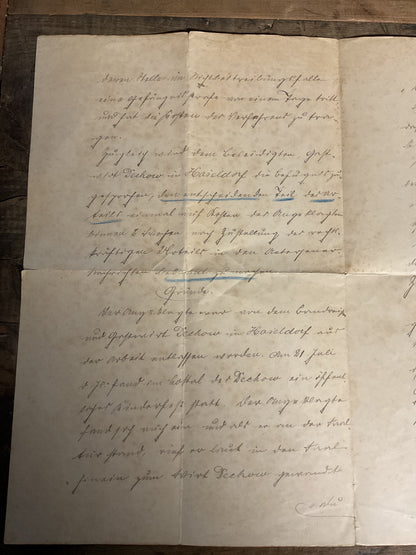 deren Stelle im Nichtbeitreibungsfalle
eine Gefängnisstrafe von einem Tage tritt,
und hat die Kosten des Verfahrens zu tra-
gen.
Zugleich wird dem Beleidigten, Gast-
wirt Deckow in Haseldorf die Befugnis zu-
gesprochen, den entscheidenden Teil des Ur-
teils einmal auf Kosten des Angeklagten
binnen 2 Wochen nach Zustellung des rechts-
kräftigen Urteils in den Uetersener
Nachrichten bekannt zu machen.
Gründe.
Der Angeklagte war von dem
und Gastwirt Deckow in Haseldorf aus
der Arbeit entlassen worden. Am 21 Juli
d. Js. fand im Lokal des Deckow ein öffent-
liches Kinderfest statt. Der Angeklagte
fand sich auch ein und als er an der Saal-
tür stand, rief er laut in den Saal
hinein zum Wirt Deckow gewendet